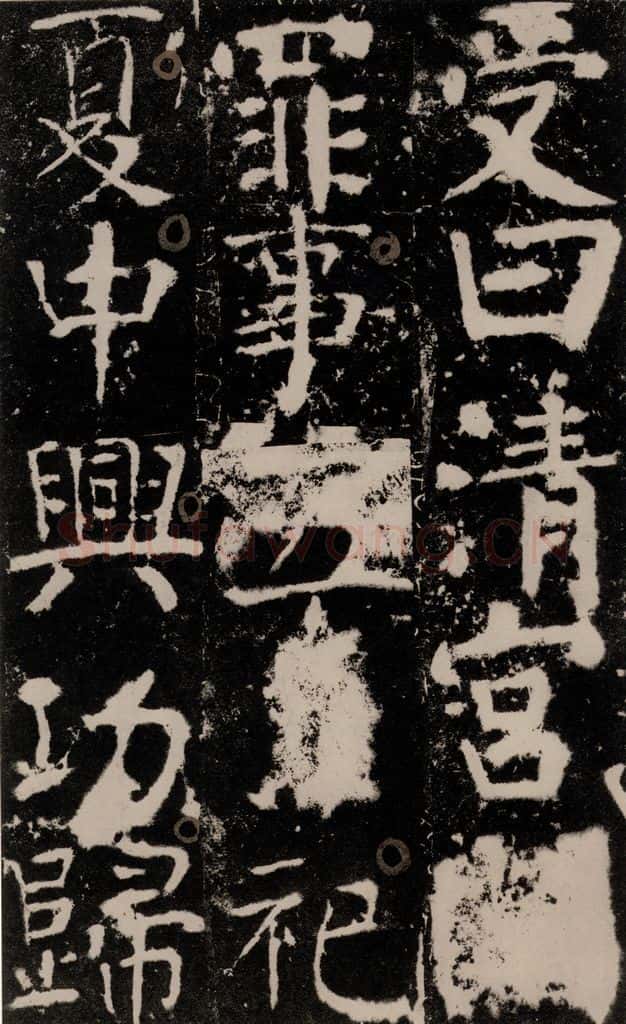 受曰清宮
罪事祀
夏中興功歸
Shufawang.CN